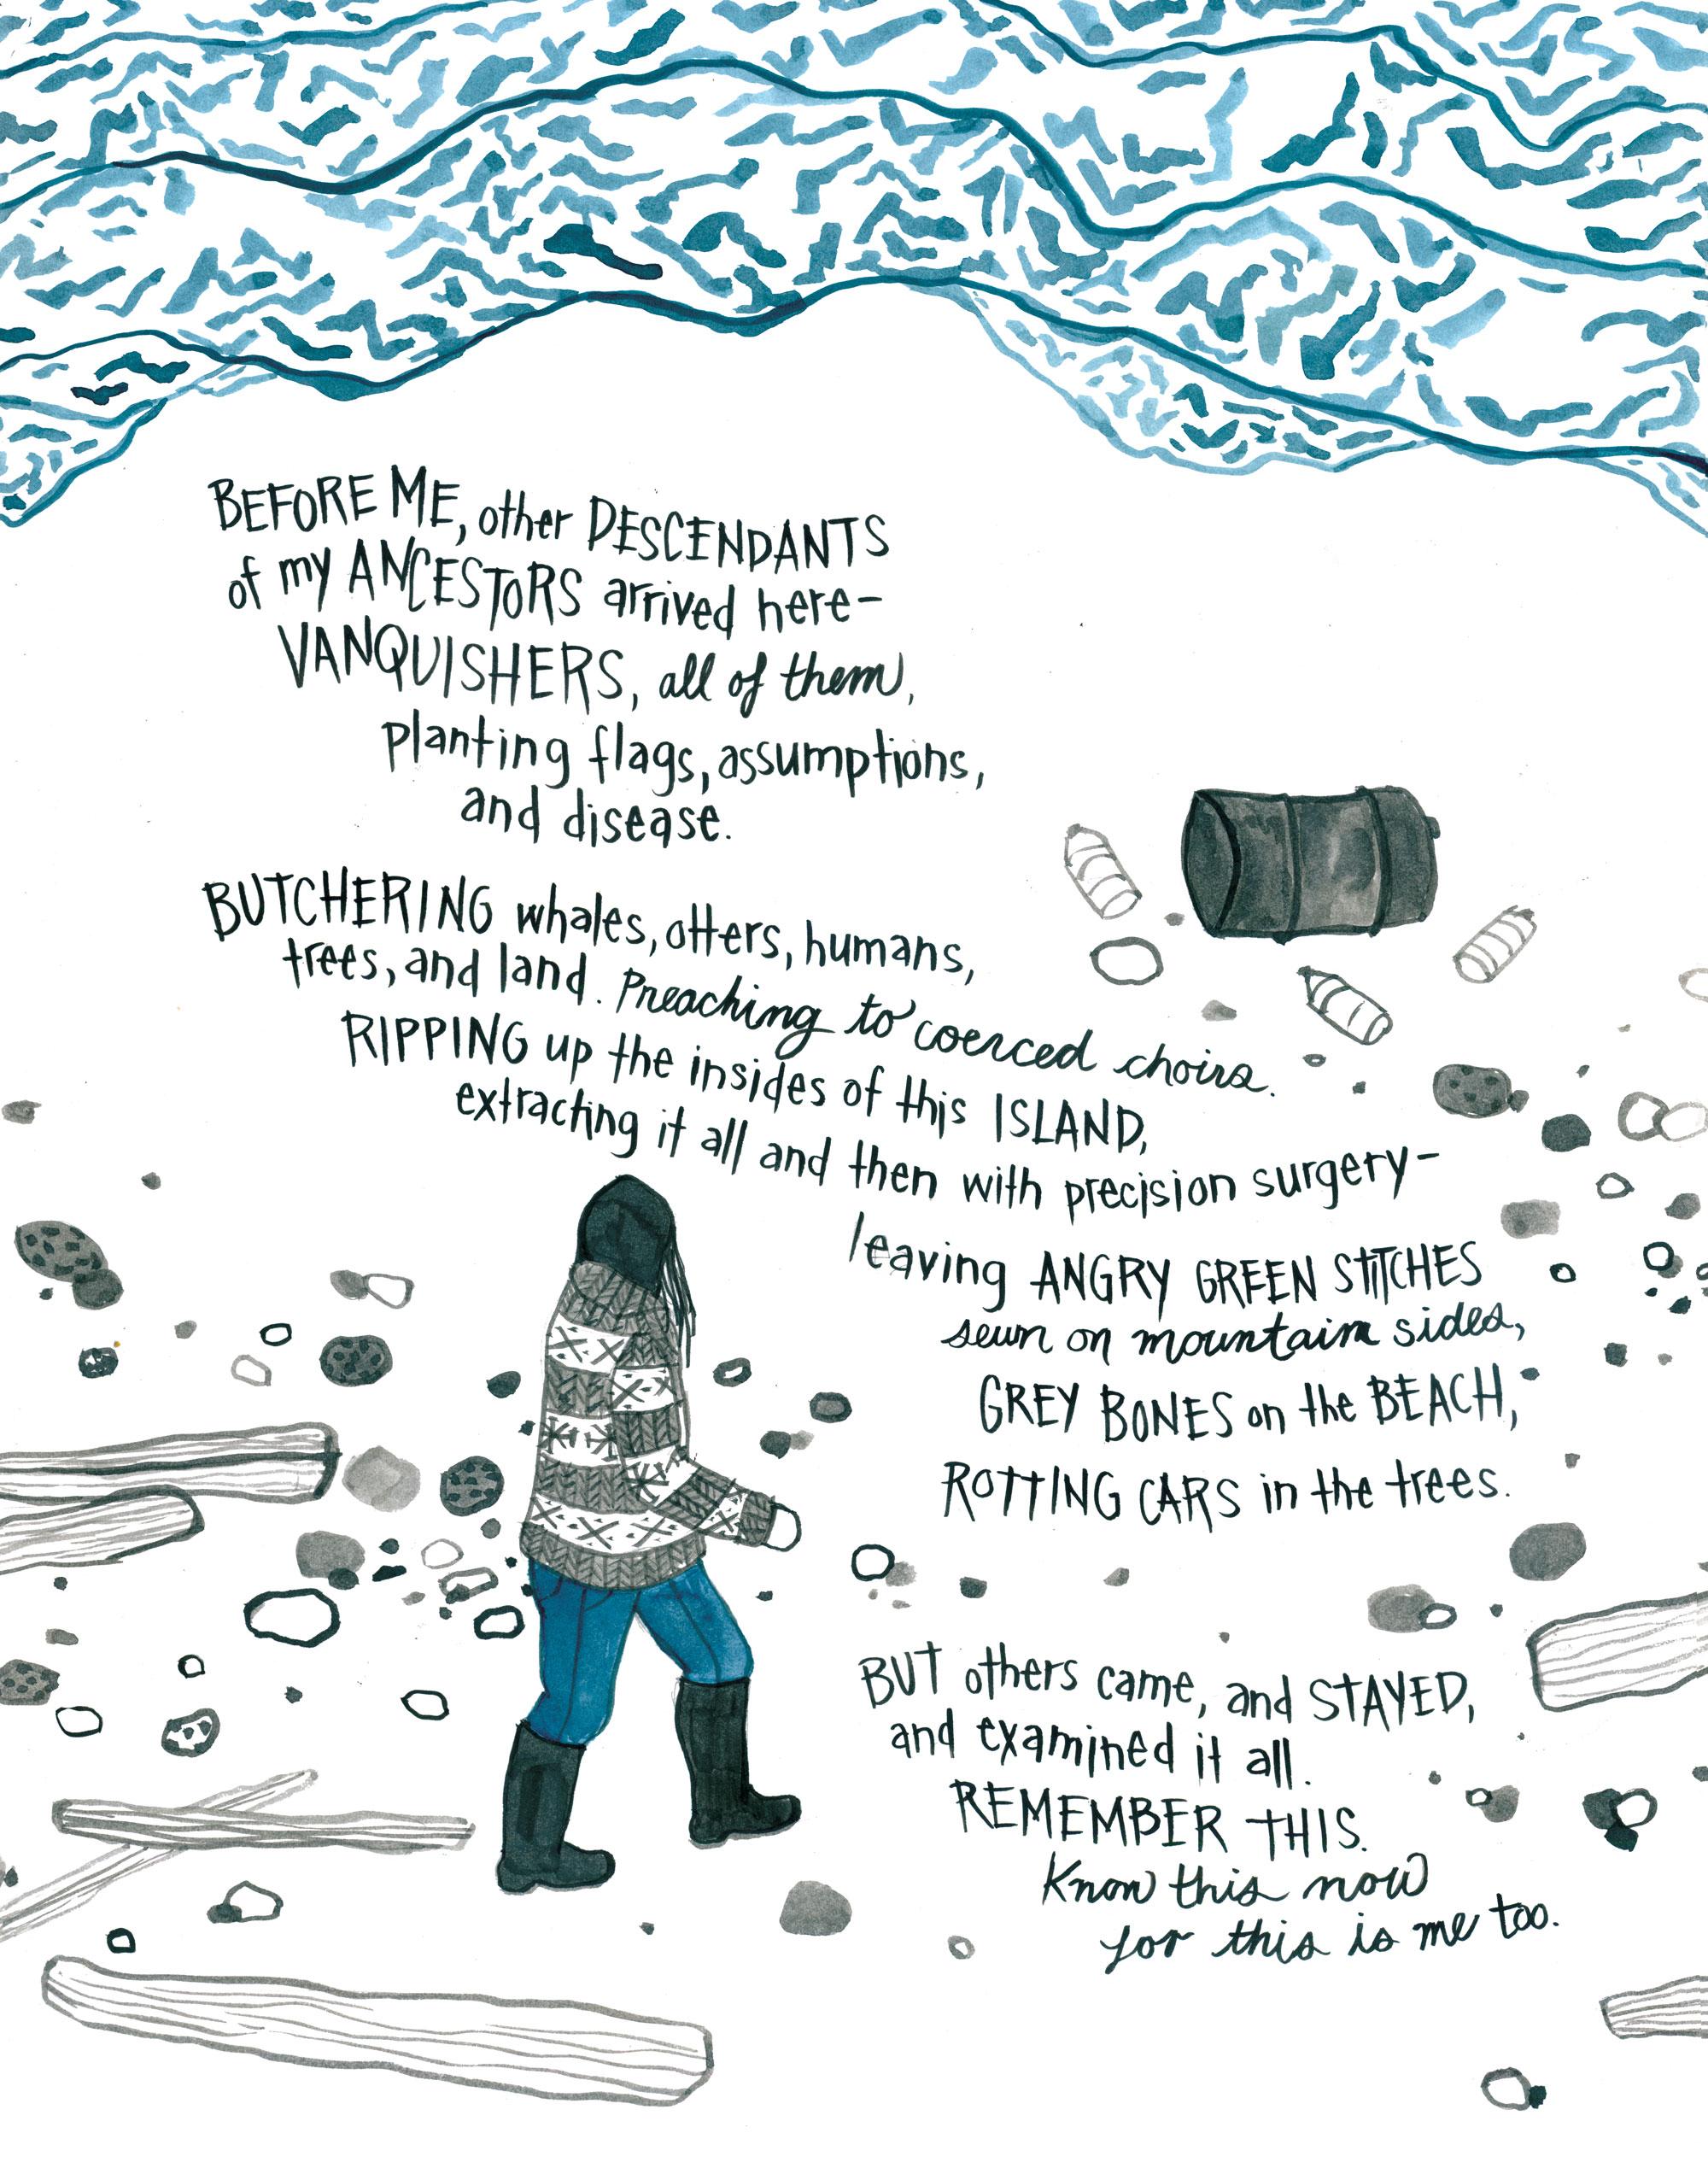 BEFORE ME, other DESCENDANTS
of my ANCESTORS arrived here–
VANQUISHERS, all of them,
planting flags, assumptions,
and disease.
BUTCHERING whales, otters, humans,
trees, and land. Preaching to coerced choirs.
RIPPING up the insides of this ISLAND,
extracting it all and then with precision surgery–
leaving ANGRY GREEN STITCHES
sewn on mountain sides,
GREY BONES on the BEACH,
ROTTING CARS in the trees.
BUT others came, and STAYED,
and examined it all.
REMEMBER THIS.
Know this now
for this is me too.